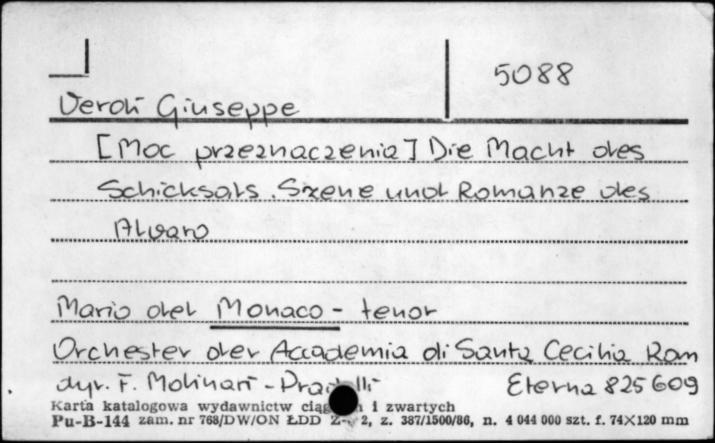 5088
Verdi Giuseppe
[Moc przeznaczenia] Die Macht des
Schicksals. Szene und Romanze des
Alvaro
Mario del Monaco - tenor
Orchester der Accademia di Santa Cecilia Rom
dyr. F. Molinari - Pradelli
Eterna 825 609
Karta katalogowa wydawnictw ciągłych i zwartych
Pu-B-144 zam. nr 768/DW/ON ŁDD 2, z. 387/1500/86, n. 4 044 000 szt. f. 74X120 mm